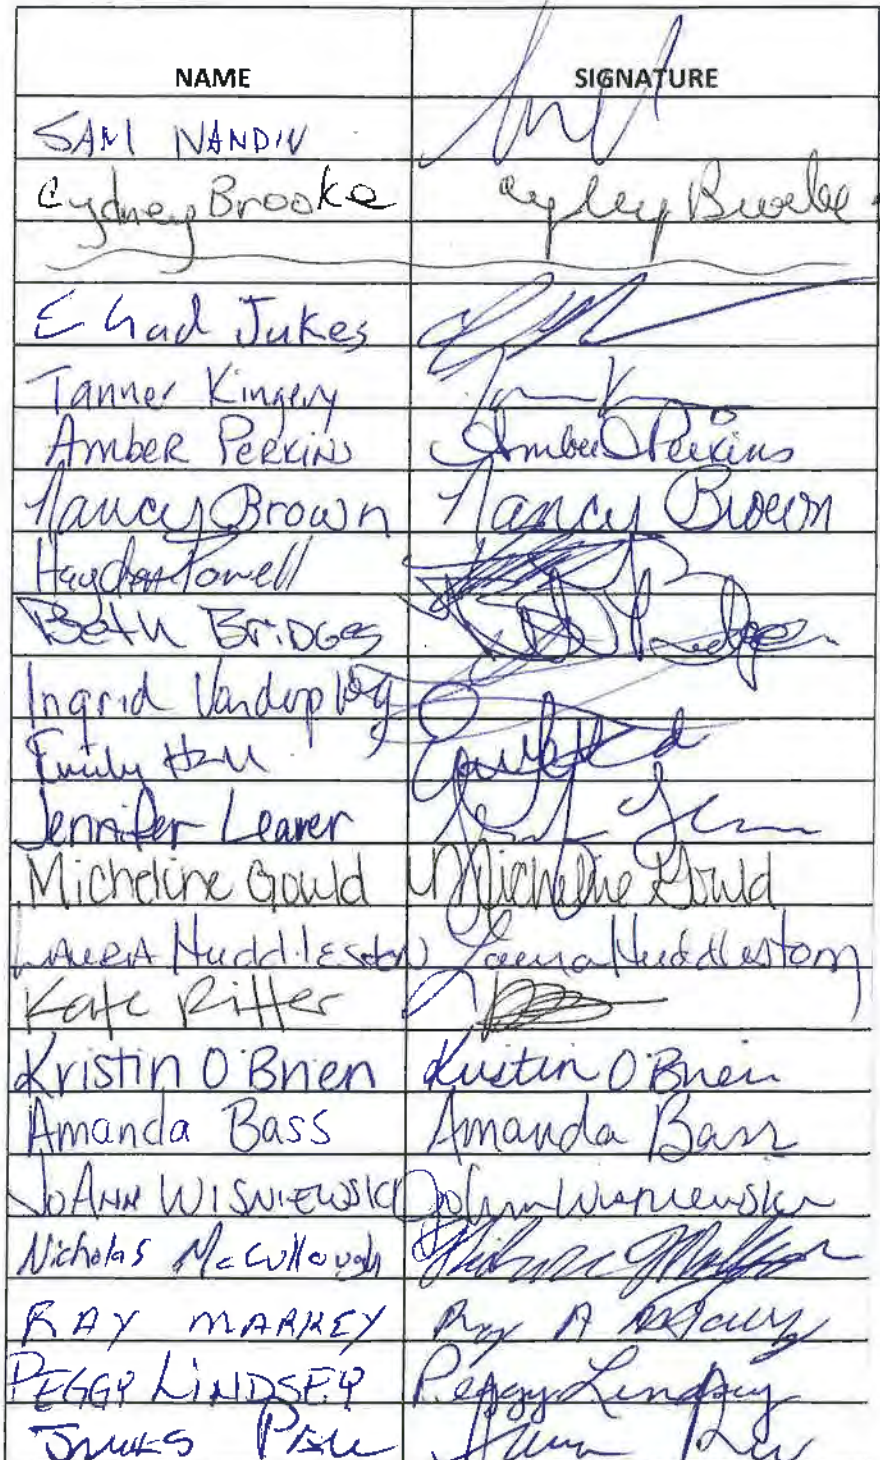 NAME SIGNATURE
SAM NANDIN
Cydney Brooke Cydney Brooke
Chad Jukes
Tanner Kingery
AmbeR PeRKiNS Amber Perkins
Nancy Brown Nancy Brown
Hayden Powell
BeTH BRiDGeS Beth Bridges
Ingrid
Emily Hall
Jennifer Leaver
Micheline Gould Micheline Gould
LAURA Huddleston Laura Huddlestom
Kate Ritter
Kristin O'Brien Kristin O'Brien
Amanda Bass Amanda Bass
JoANN WISNIEWSKI JoAnn Wisniewski
Nicholas McCullough
RAY MARKEY Ray A Markey
PEGGY LiNDSEY Peggy Lindsey